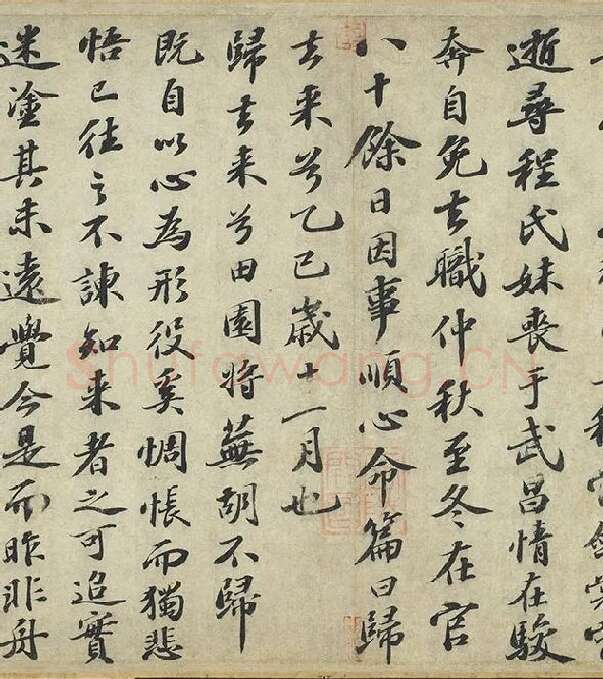 逝尋程氏妹喪于武昌情在駿
奔自免去職仲秋至冬在官
八十餘日因事順心命篇曰歸
去来兮乙巳歳十一月也
歸去来兮田園将蕪胡不歸
既自以心為形役奚惆悵而獨悲
悟已往之不諫知来者之可追實
迷塗其未遠覺今是而昨非舟
Shufawang.CN